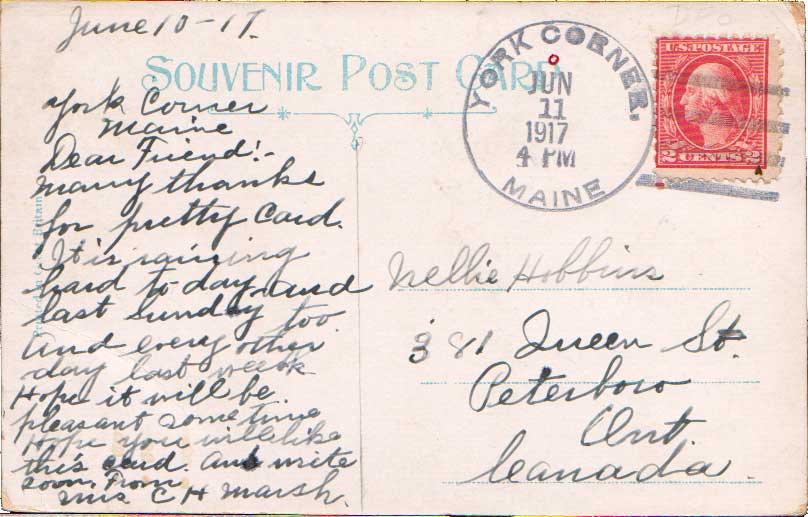 June 10-17.
SOUVENIR POST CARD
York Corner
Maine
Dear Friend!-
Many thanks
for pretty card.
It is raining
hard to-day and
last Sunday too
and every other
day last week
Hope it will be
pleasant sometime
Hope you will like
this card. And write
soon. From
Mrs C H Marsh.
YORK CORNER.
JUN
11
1917
4 PM
MAINE
U.S. POSTAGE
2 CENTS 2
Nellie Hobbins
381 Queen St.
Peterboro
Ont.
Canada.